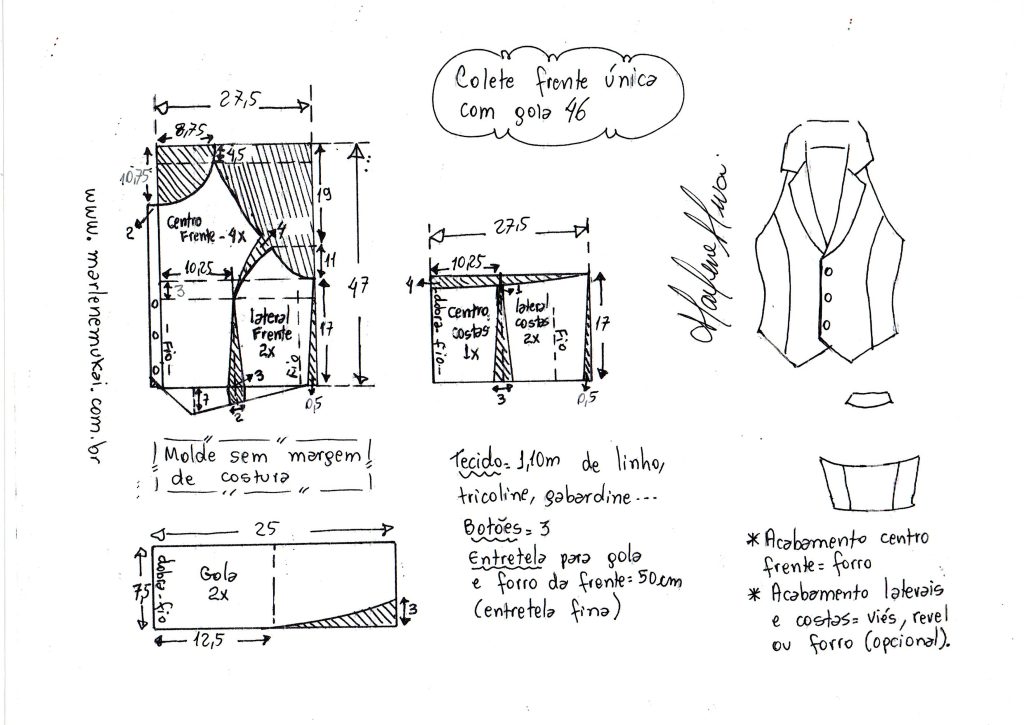 Colete frente única
com gola 46
27,5
8,75
4,5
10,75
19
2
Centro
Frente - 4x
4
11
10,25
3
47
lateral
Frente
2x
17
Fio
Fio
3
7
2
0,5
www.marlenemukai.com.br
27,5
10,25
4
1
dobra fio
Centro
costas
1x
lateral
costas
2x
Fio
17
3
0,5
Marlene Mukai
Molde sem margem
de costura
25
7,5
dobra fio
Gola
2x
3
12,5
Tecido = 1,10m de linho,
tricoline, gabardine...
Botões = 3
Entretela para gola
e forro da frente = 50cm
(entretela fina)
* Acabamento centro
frente = forro
* Acabamento laterais
e costas = viés, revel
ou forro (opcional).